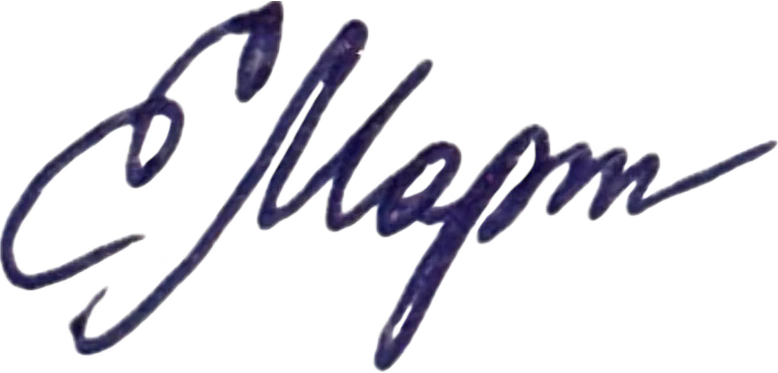 Е Март